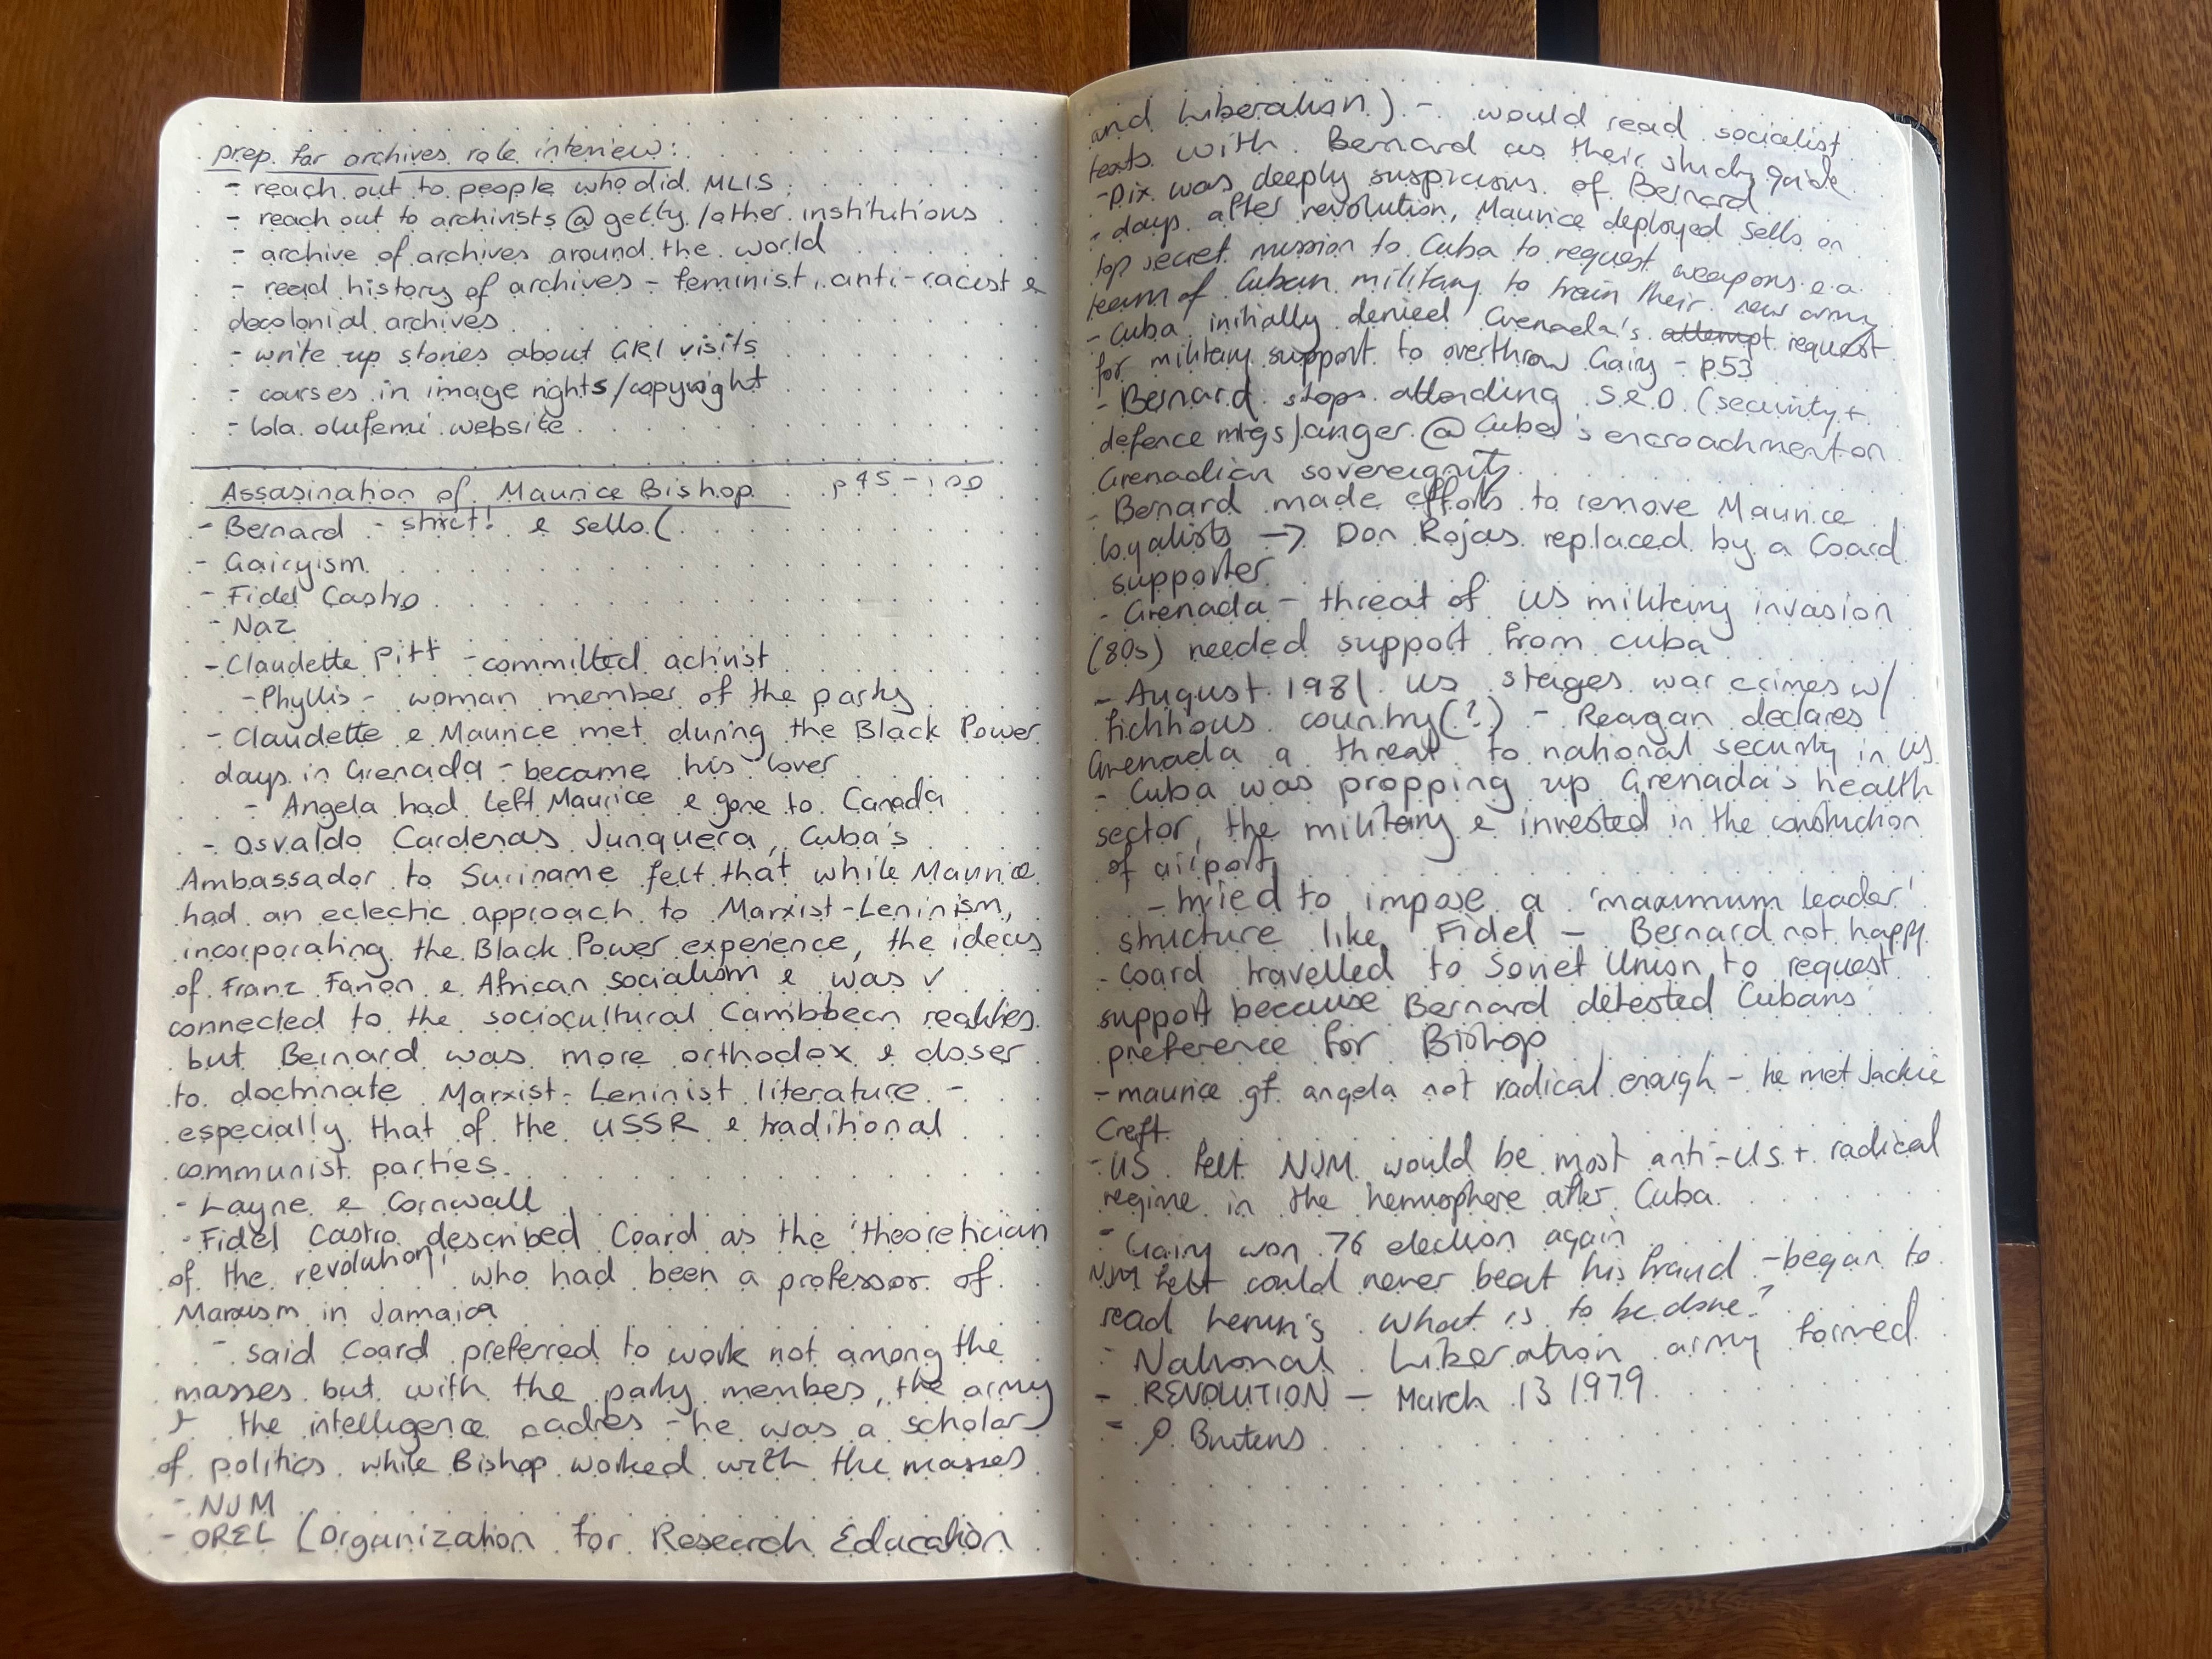 prep for archives role interview:
- reach out to people who did MLIS
- reach out to archivists @ getty /other institutions
- archive of archives around the world
- read history of archives - feminist, anti-racist &
decolonial archives
- write up stories about GRI visits
- courses in image rights/copyright
- lola olufemi website
Assasination of Maurice Bishop p45-100
- Bernard - strict! & sello (
- Gairyism
- Fidel Castro
- Naz
- Claudette Pitt - committed activist
- Phyllis - woman member of the party
- Claudette & Maurice met during the Black Power
days in Grenada - became his lover
- Angela had left Maurice & gone to Canada
- Osvaldo Cardenas Junquera, Cuba's
Ambassador to Suriname felt that while Maurice
had an eclectic approach to Marxist-Leninism,
incorporating the Black Power experience, the ideas
of Franz Fanon & African socialism & was v
connected to the sociocultural Carribbean realities
but Bernard was more orthodox & closer
to doctrinate Marxist-Leninist literature -
especially that of the USSR & traditional
communist parties.
- Layne & Cornwall
- Fidel Castro described Coard as the 'theoretician
of the revolution' who had been a professor of
Marxism in Jamaica
- said Coard preferred to work not among the
masses but with the party members, the army
+ the intelligence cadres - he was a scholar
of politics while Bishop worked with the masses
- NJM
- OREL (Organization for Research Education
and Liberation) - would read socialist
texts with Bernard as their study guide
- Dix was deeply suspicious of Bernard
- days after revolution, Maurice deployed Sello on
top secret mission to Cuba to request weapons & a
team of Cuban military to train their new army
- Cuba initially denied Grenada's attempt request
for military support to overthrow Gairy - p53
- Bernard stops attending S&D (security +
defence mtgs/anger @ Cuba's encroachment on
Grenadian sovereignty
- Bernard made efforts to remove Maurice
loyalists → Don Rojas replaced by a Coard
supporter
- Grenada - threat of US military invasion
(80s) needed support from cuba
- August 1981 US stages war crimes w/
fichhous country(?) - Reagan declares
Grenada a threat to national security in US
- Cuba was propping up Grenada's health
sector, the military & invested in the construction
of airport
- tried to impose a 'maximum leader'
structure like Fidel - Bernard not happy
- Coard travelled to Soviet Union to request
support because Bernard detested Cubans
preference for Bishop
- maurice gf angela not radical enough - he met Jackie
Creft
- US felt NJM would be most anti-US + radical
regime in the hemisphere after Cuba
- Gairy won 76 election again
NJM felt could never beat his fraud - began to
read Lenin's What is to be done?
- National Liberation army formed
- REVOLUTION - March 13 1979